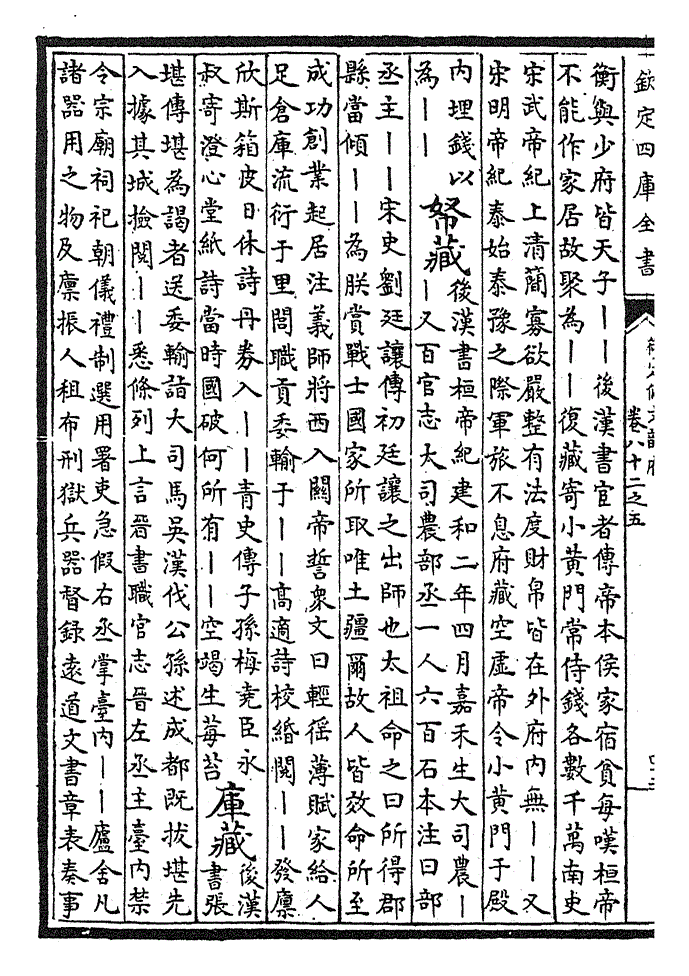 欽定四庫全書
卷八十二之五
衡與少府皆天子——後漢書宦者傳帝本侯家宿貧每嘆桓帝
不能作家居故聚為——復藏寄小黄門常侍錢各數千萬南史
宋武帝紀上清簡寡欲嚴整有法度財帛皆在外府内無——又
宋明帝紀泰始泰豫之際軍旅不息府藏空虚帝令小黄門于殿
内埋錢以
為——
帑藏
後漢書桓帝紀建和二年四月嘉禾生大司農—
—又百官志大司農部丞一人六百石本注曰部
丞主——宋史劉廷讓傳初廷讓之出師也太祖命之曰所得郡
縣當傾——為朕賞戰士國家所取唯土疆爾故人皆效命所至
成功創業起居注義師將西入關帝誓衆文曰輕徭薄賦家給人
足倉庫流衍于里閭職貢委輸于——髙適詩校緡閱——發廪
欣斯箱皮日休詩丹劵入——青史傳子孫梅堯臣永
叔寄澄心堂紙詩當時國破何所有——空竭生莓苔
庫藏
後漢
書張
堪傳堪為謁者送委輸詣大司馬吳漢伐公孫述成都既拔堪先
入據其城撿閱——悉條列上言晉書職官志晉左丞主臺内禁
令宗廟祠祀朝儀禮制選用署吏急假右丞掌臺内——廬舍凡
諸器用之物及廪振人租布刑獄兵器督録逺道文書章表奏事